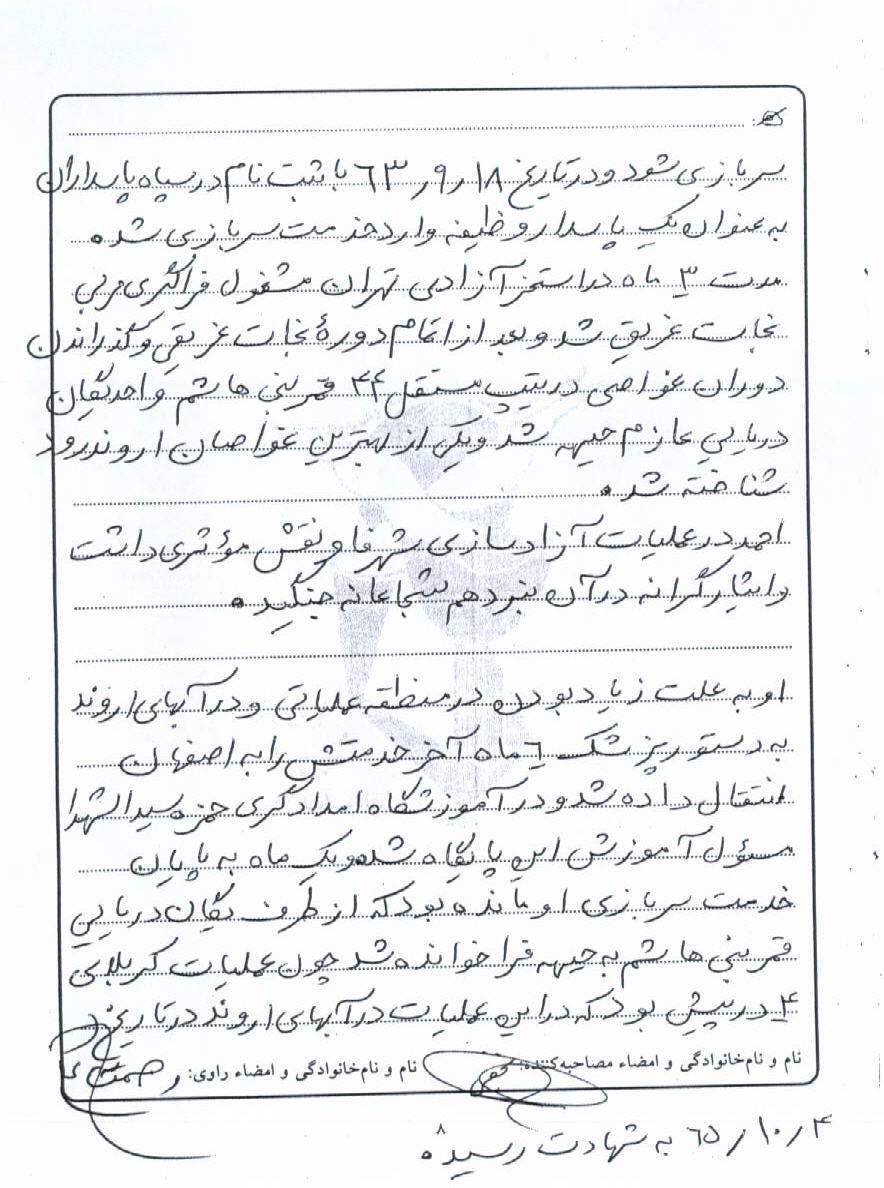 سربازی شود و در تاریخ ۶۳٫۹٫۱۸ با ثبت نام در سپاه پاسداران
به عنوان یک پاسدار وظیفه وارد خدمت سربازی شده
مدت ۳ ماه در استخر آزادی تهران مشغول فراگیری مربی
نجات غریق شد و بعد از اتمام دورهٔ نجات غریقی و گذراندن
دوران غواصی در تیپ مستقل ۴۴ قمر بنی هاشم واحد یگان
دریایی عازم جبهه شد و یکی از بهترین غواصان اروندرود
شناخته شد.
احمد در عملیات آزادسازی شهر فاو نقش مؤثری داشت
و ایثارگرانه در آن نبرد هم شجاعانه جنگید.
او به علت زیاد بودن در منطقه عملیاتی و در آبهای اروند
به دستور پزشک ۶ ماه آخر خدمتش را به اصفهان
انتقال داده شد و در آموزشگاه امدادگری حمزه سیدالشهدا
مسؤل آموزش این پایگاه شد و یک ماه به پایان
خدمت سربازی او مانده بود که از طرف یگان دریایی
قمر بنی هاشم به جبهه فراخوانده شد چون عملیات کربلای
۴ در پیش بود که در این عملیات در آبهای اروند در تاریخ
نام و نام‌خانوادگی و امضاء مصاحبه‌کننده: نام و نام‌خانوادگی و امضاء راوی:
۶۵/۱۰/۴ به شهادت رسید.